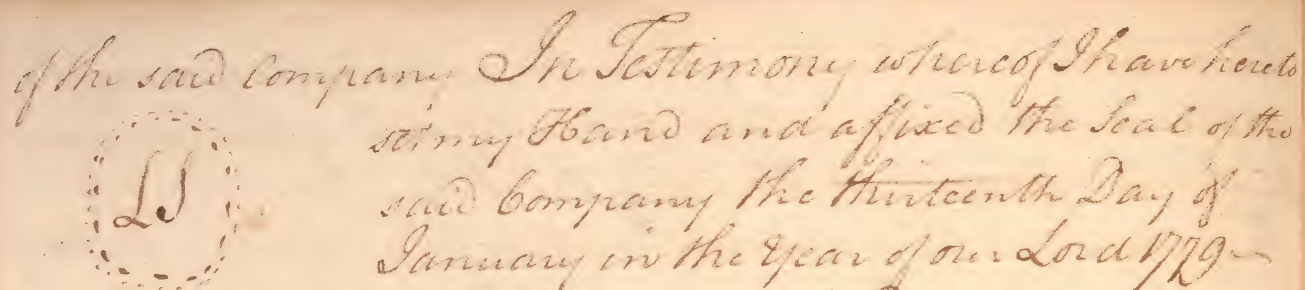 of the said Company In Testimony whereof I have hereto
set my Hand and affixed the Seal of the
LS
said Company the thirteenth Day of
January in the Year of our Lord 1779